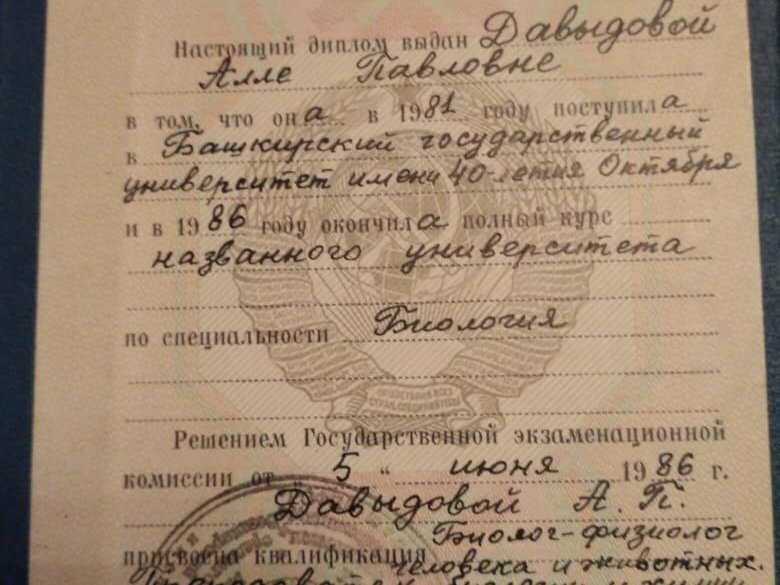 Настоящий диплом выдан Давыдовой
Алле Павловне
в том, что она в 1981 году поступила
в Башкирский государственный
университет имени 40-летия Октября
и в 1986 году окончила полный курс
названного университета
по специальности Биология
Решением Государственной экзаменационной
комиссии от 5 " июня 1986 г.
Давыдовой А. П.
присвоена квалификация Биолог-физиолог
человека и животных.